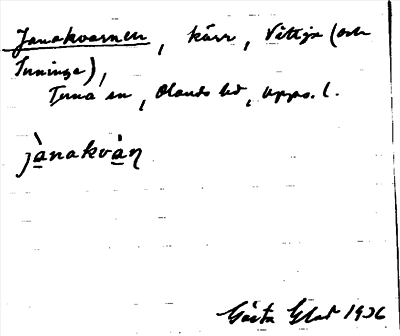 Janakvarnen, kärr, Vittja (och
Tuninge),
Tuna sn, Olands hd, Upps. l.
jànakvàn
Gösta 1936